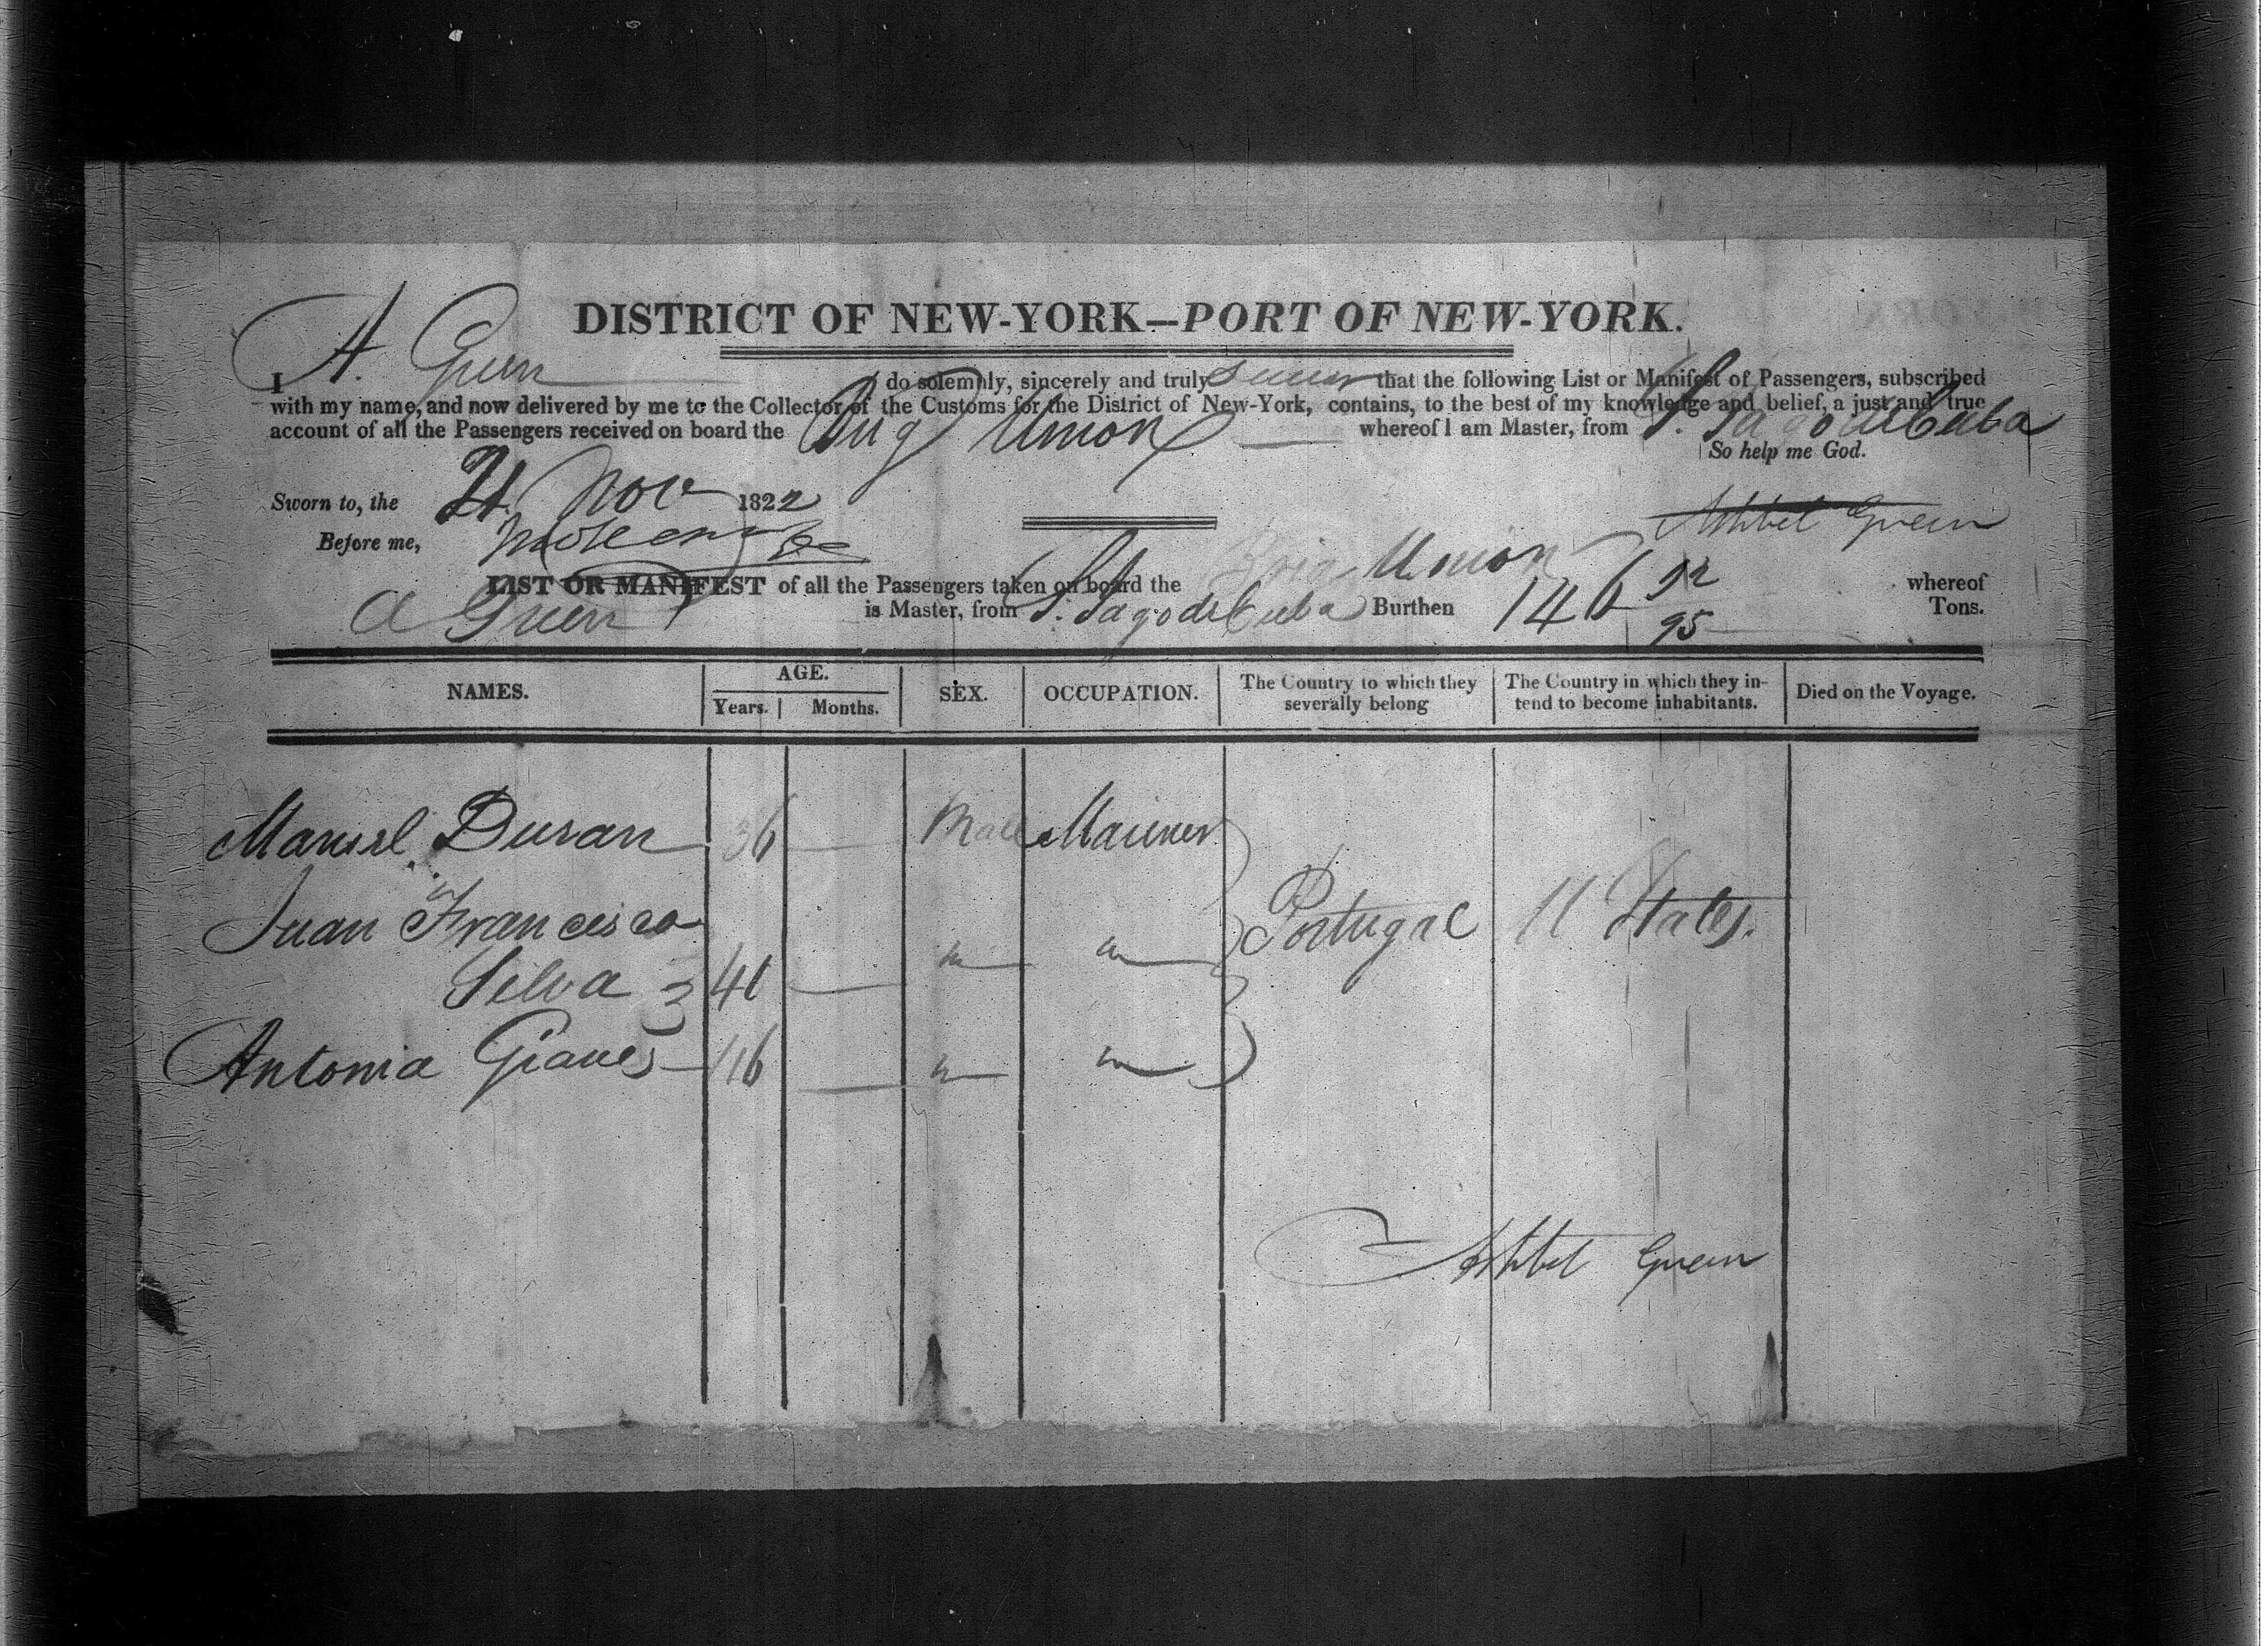 DISTRICT OF NEW-YORK—PORT OF NEW-YORK.
I A. Green do solemnly, sincerely and truly swear that the following List or Manifest of Passengers, subscribed
with my name, and now delivered by me to the Collector of the Customs for the District of New-York, contains, to the best of my knowledge and belief, a just and true
account of all the Passengers received on board the Brig Union whereof I am Master, from St. Iago de Cuba
So help me God.
Sworn to, the 21 Nov 1822
Ashbel Green
Before me,
LIST OR MANIFEST of all the Passengers taken on board the Brig Union whereof
A Green is Master, from St. Iago de Cuba Burthen 146 92/95 Tons.
NAMES. AGE. SEX. OCCUPATION. The Country to which they severally belong The Country in which they intend to become inhabitants. Died on the Voyage.
Years. Months.
Manuel Duran 36 — Male Mariner
Juan Francisco
Portugal U States.
Silva 40 — " "
Antonia 46 — " "
Ashbel Green